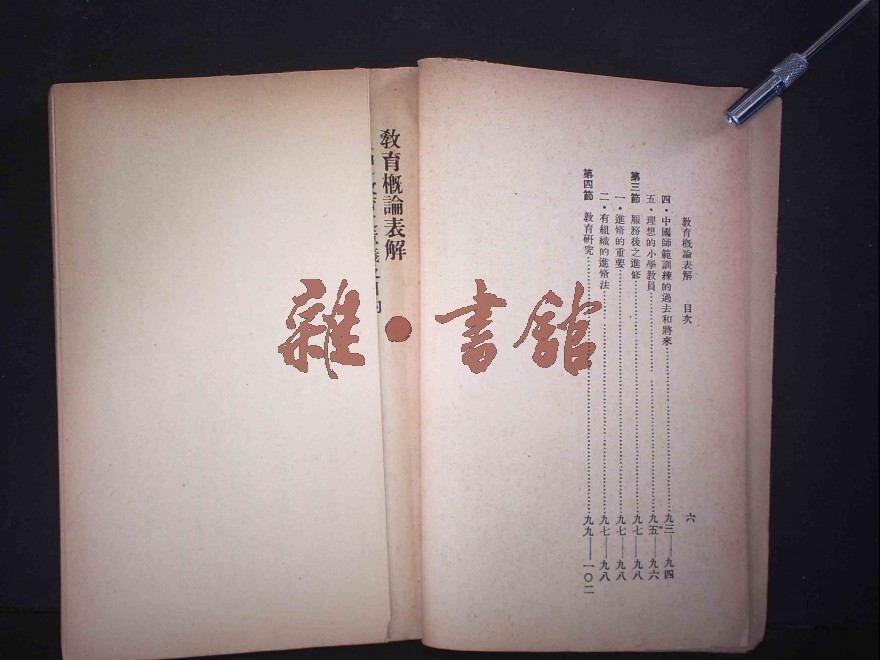 教育概論表解 目次 六
四・中國師範訓練的過去和將來……九三——九四
五・理想的小學教員……九五——九六
第三節 服務後之進修……九七——九八
一・進修的重要……九七——九八
二・有組織的進修法……九七——九八
第四節 教育研究……九九——一〇二
教育概論表解
雜・書館